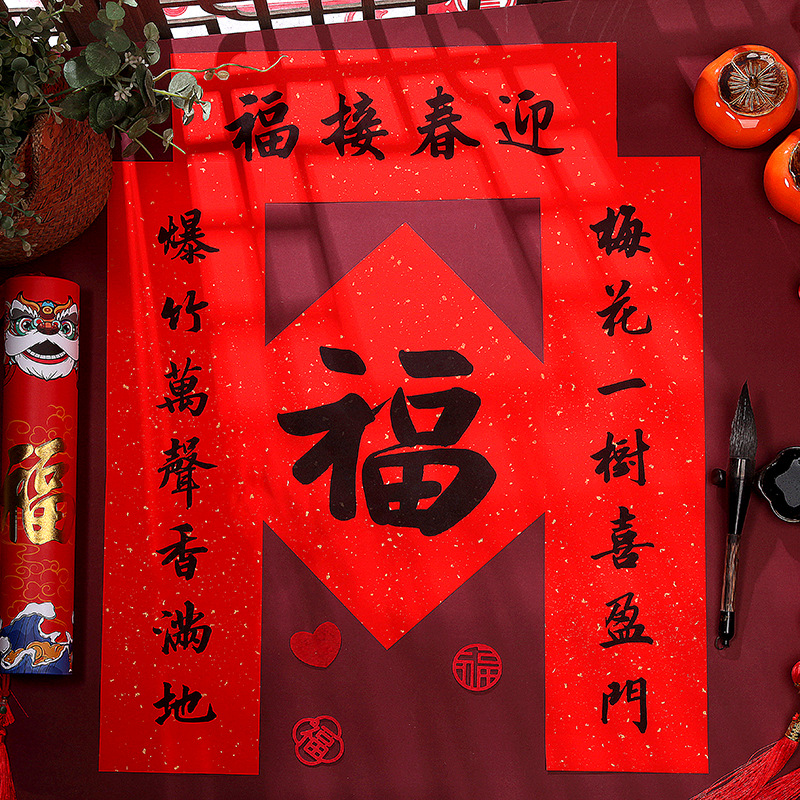 迎春接福
梅花一樹喜盈門
爆竹萬聲香滿地
福
福
福
福